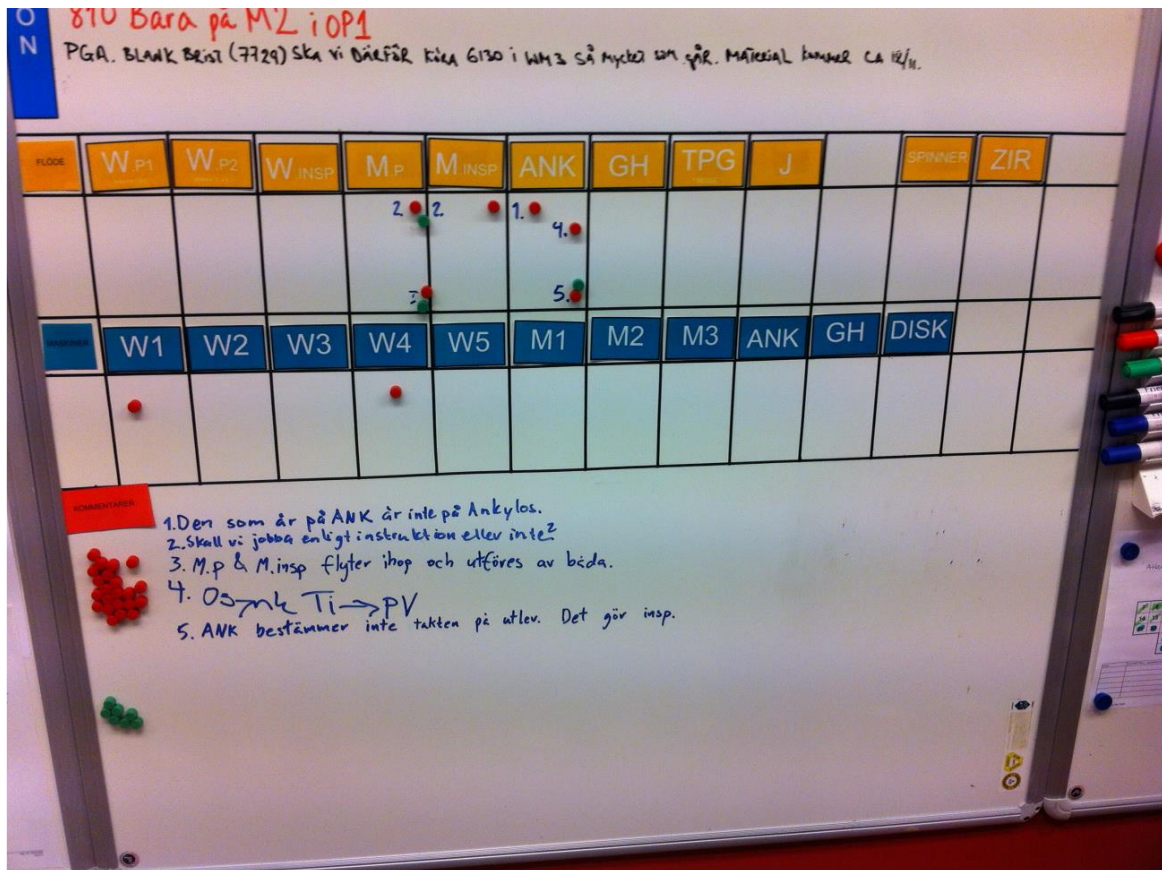 O
N
810 Bara på M2 i OP1
PGA. BLANK BRIST (7729) SKA Vi DÄRFÖR KöRA 6130 i WM3 SÅ Mycket som gÅR. MATERIAL kommer CA 12/11.
FLÖDE W.P1 W.P2 W.INSP M.P M.INSP ANK GH TPG J SPINNER ZIR
2. 2. 1.
4.
5.
MASKINER W1 W2 W3 W4 W5 M1 M2 M3 ANK GH DISK
KOMMENTARER
1. Den som är på ANK är inte på Ankylos.
2. Skall vi jobba enligt instruktion eller inte?
3. M.p & M.insp flyter ihop och utföres av båda.
4. Ti → PV
5. ANK bestämmer inte takten på utlev. Det gör insp.